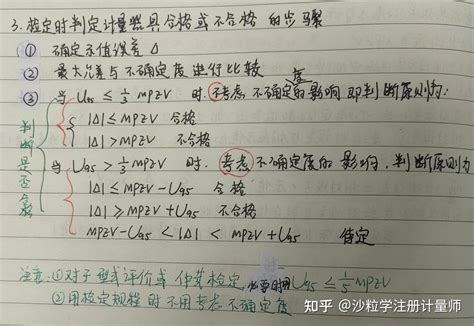 3. 检定时判定计量器具合格或不合格 的步骤
① 确定示值误差 Δ
② 最大允差与不确定度进行比较
③ 当 U₉₅ ≤ 1/3 MPEV 时, 不考虑 不确定度的影响 即判断原则为:
|Δ| ≤ MPEV 合格
|Δ| > MPEV 不合格
当 U₉₅ > 1/3 MPEV 时 考虑 不确定度的影响, 判断原则为
|Δ| ≤ MPEV - U₉₅ 合格
|Δ| ≥ MPEV + U₉₅ 不合格
MPEV - U₉₅ < |Δ| < MPEV + U₉₅ 待定
判断是否合格
注意: ① 对于型式评价或 仲裁检定, 必要时用 U₉₅ ≤ 1/5 MPEV
② 用检定规程时不用考虑 不确定度
知乎 @沙粒学注册计量师